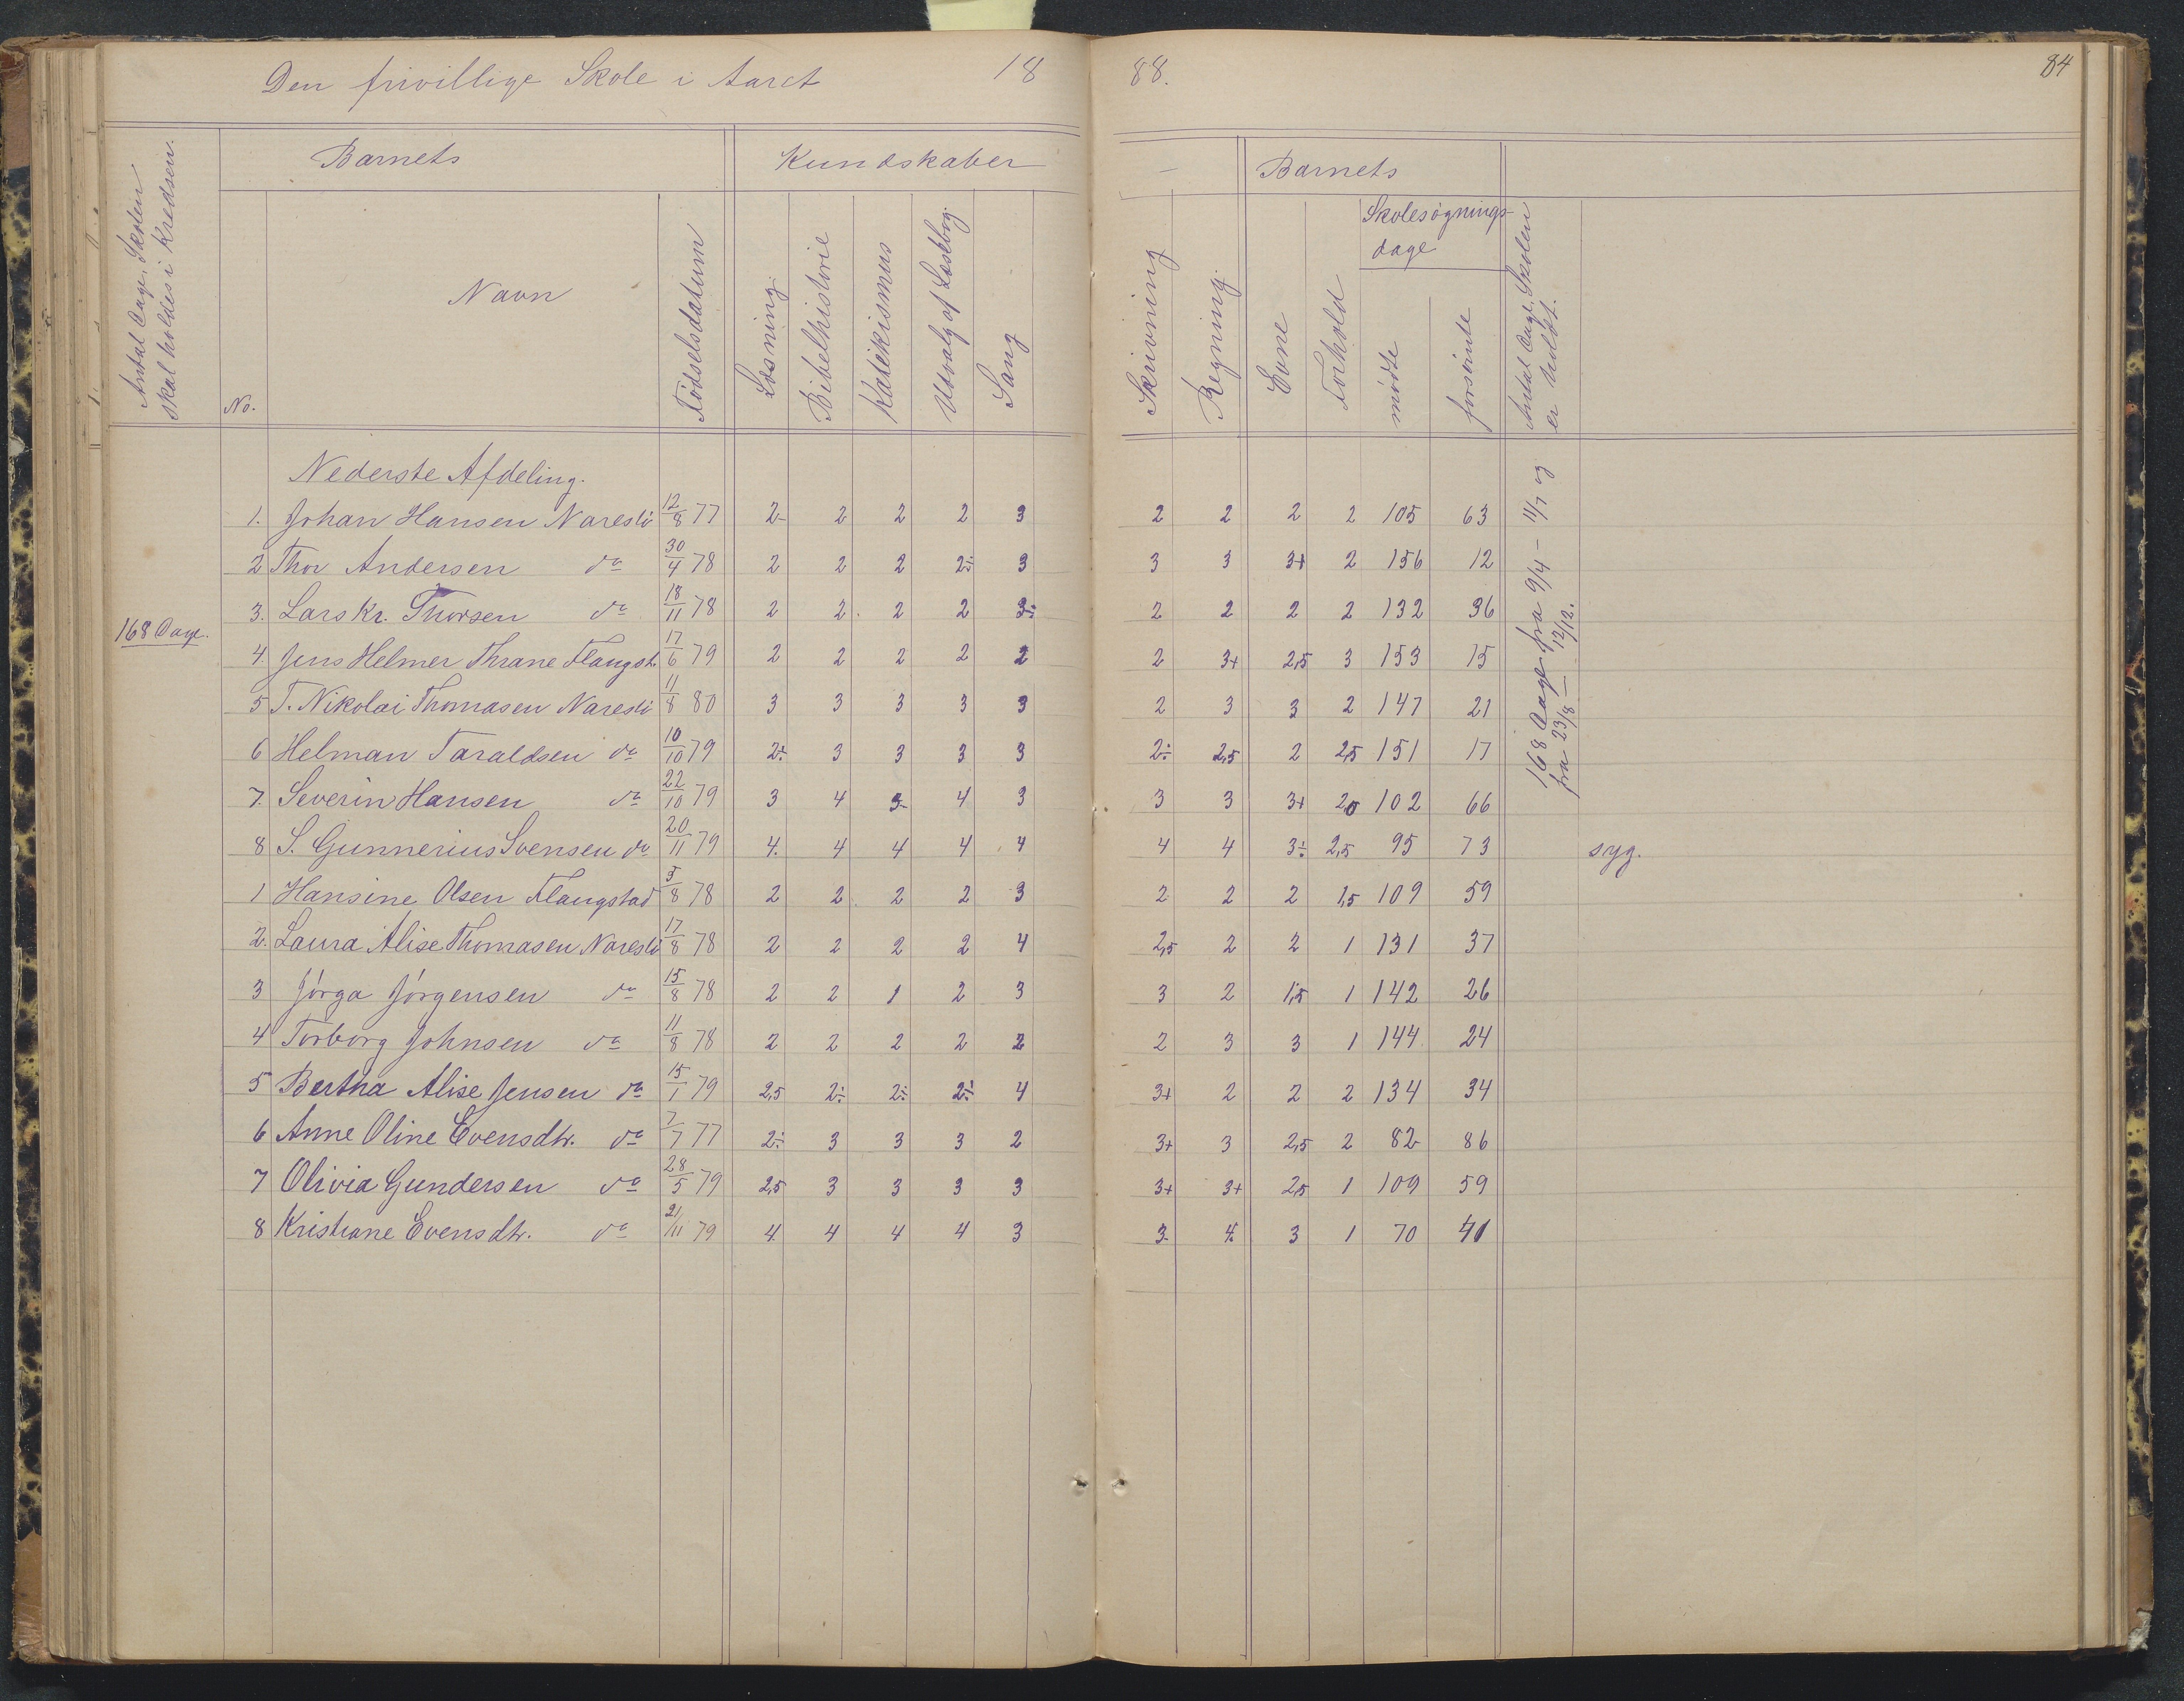 Den frivillige Skole i Aaret 1888.
84
Antal Dage, Skolen skal holdes i Kredsen.
Barnets
Kundskaber
Barnets
No.
Navn
Fødselsdatum
Læsning
Bibelhistorie
Katekismus
Udvalg af Læsebog.
Sang
Skrivning
Regning.
Evne
Forhold
Skolesøgnings-
dage
mødte
forsømte
Antal Dage, Skolen er holdt.
Nederste Afdeling.
168 Dage.
168 Dage fra 9/4 – 11/7 og
fra 23/8 – 12/12.
1. Johan Hansen Naresti 12/8 77 2- 2 2 2 3 2 2 2 2 105 63
2 Thor Andersen do 30/4 78 2 2 2 2÷ 3 3 3 3+ 2 156 12
3. Lars Kr. Thorsen do 18/11 78 2 2. 2 2 3÷ 2 2 2 2 132 36
4. Jens Helmer Thrane Flangst. 17/6 79 2 2 2 2 2 2 3+ 2,5 3 153 15
5 T. Nikolai Thomasen Naresti 11/8 80 3 3 3 3 3 2 3 3 2 147 21
6 Helman Taraldsen do 10/10 79 2÷ 3 3 3 3 2÷ 2,5 2 2,5 151 17
7. Severin Hansen do 22/10 79 3 4 3- 4 3 3 3 3+ 2,5 102 66
8 S. Gunnerius Svensen do 20/11 79 4. 4 4 4 4 4 4 3÷ 2,5 95 73 syg.
1 Hansine Olsen Flangstad 5/8 78 2 2. 2 2 3 2 2 2 1,5 109 59
2. Laura Alise Thomasen Naresti 17/8 78 2 2 2 2 4 2,5 2 2 1 131 37
3 Jørga Jørgensen do 15/8 78 2 2 1 2 3 3 2 1,5 1 142 26
4 Torborg Johnsen do 11/8 78 2 2 2 2 2 2 3 3 1 144. 24
5 Bertha Alise Jensen do 15/1 79 2,5 2÷ 2÷ 2÷ 4 3+ 2 2 2 134 34
6 Anne Oline Evensdtr. do 7/7 77 2÷ 3 3 3 2 3+ 3 2,5 2 82 86
7 Olivia Gundersen do 28/5 79 2,5 3 3 3 3 3+ 3+ 2,5 1 109 59
8 Kristiane Evensdtr. do 21/11 79 4 4 4 4 3 3- 4 3 1 70